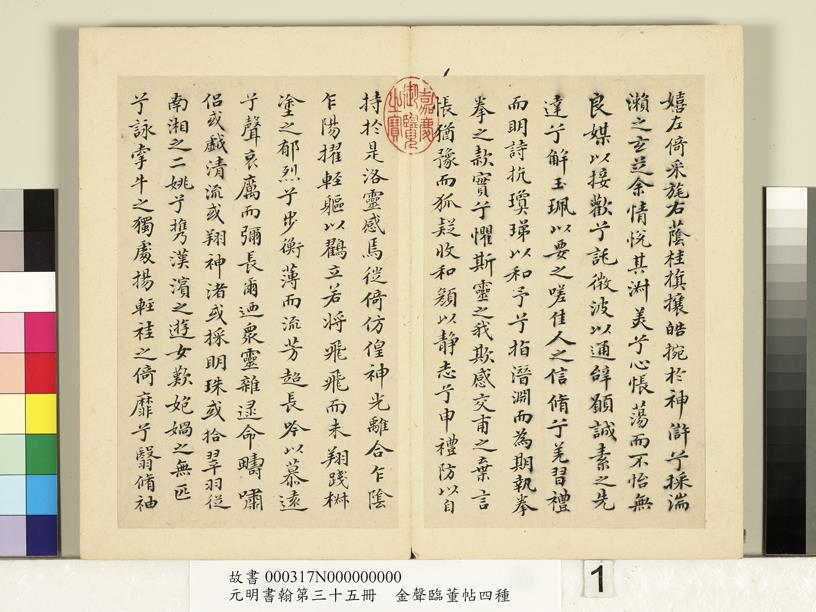 嬉左倚采旄右蔭桂旗攘皓捥於神滸兮採湍
瀨之玄芝余情悅其淑美兮心悵蕩而不怡無
良媒以接歡兮託微波以通辭願誠素之先
達兮解玉珮以要之嗟佳人之信脩兮羌習禮
而明詩抗瓊珶以和予兮指潛淵而為期執拳
拳之款實兮懼斯靈之我欺感交甫之棄言
悵猶豫而狐疑收和顏以静志兮申禮防以自
持於是洛靈感焉徙倚仿偟神光離合乍陰
乍陽擢輕軀以鸛立若將飛飛而未翔踐椒
塗之郁烈兮步衡薄而流芳超長吟以慕遠
兮聲哀厲而彌長爾迺眾靈雜遝命疇嘯
侶或戲清流或翔神渚或採明珠或拾翠羽從
南湘之二姚兮携漢濱之遊女歎匏媧之無匹
兮詠牽牛之獨處揚輕袿之倚靡兮翳脩袖
嘉慶御覽之寶
故書 000317N000000000
元明書翰第三十五冊　金聲臨董帖四種
1